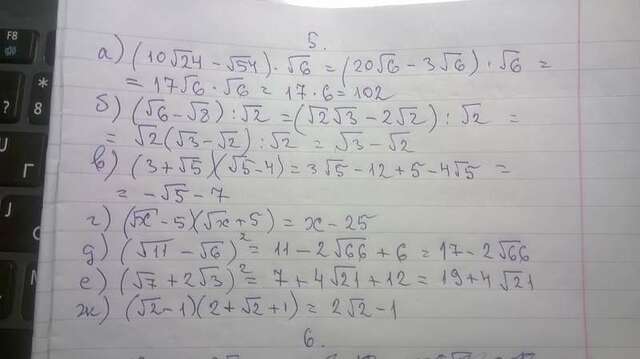 5.
а) (10√24 - √54) · √6 = (20√6 - 3√6) · √6 =
= 17√6 · √6 = 17 · 6 = 102
б) (√6 - √8) : √2 = (√2√3 - 2√2) : √2 =
= √2(√3 - √2) : √2 = √3 - √2
в) (3 + √5)(√5 - 4) = 3√5 - 12 + 5 - 4√5 =
= -√5 - 7
г) (√x - 5)(√x + 5) = x - 25
д) (√11 - √6)² = 11 - 2√66 + 6 = 17 - 2√66
е) (√7 + 2√3)² = 7 + 4√21 + 12 = 19 + 4√21
ж) (√2 - 1)(2 + √2 + 1) = 2√2 - 1
6.
F8
*
8
?
U
Г
J